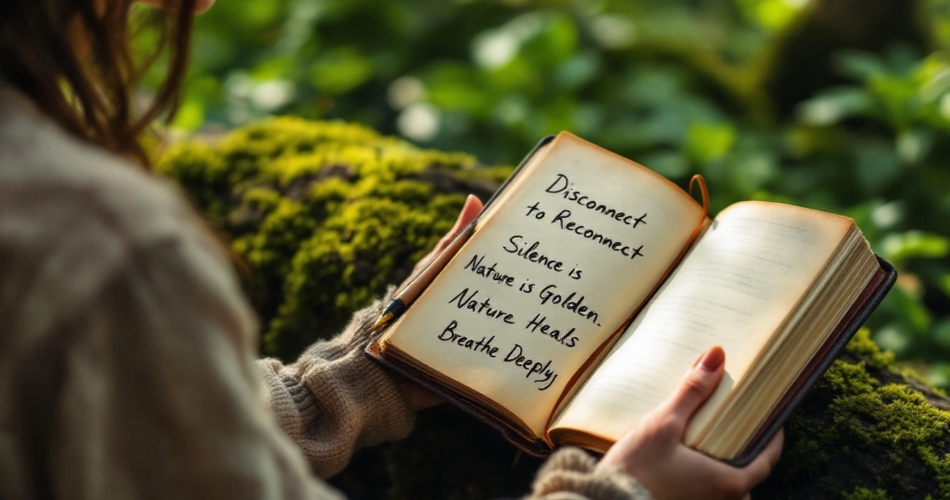 Disconnect
to Reconnect
Silence is
Nature is Golden.
Nature Heals
Breathe Deeply,